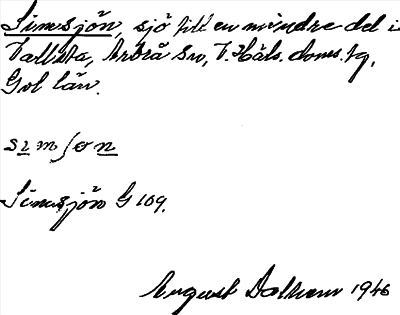 Simsjön, sjö till en mindre del i
Vallsta, Arbrå sn, V. Häls. doms. fg,
Gvl län.
sımʃɵn
Simsjön G 109.
August 1946